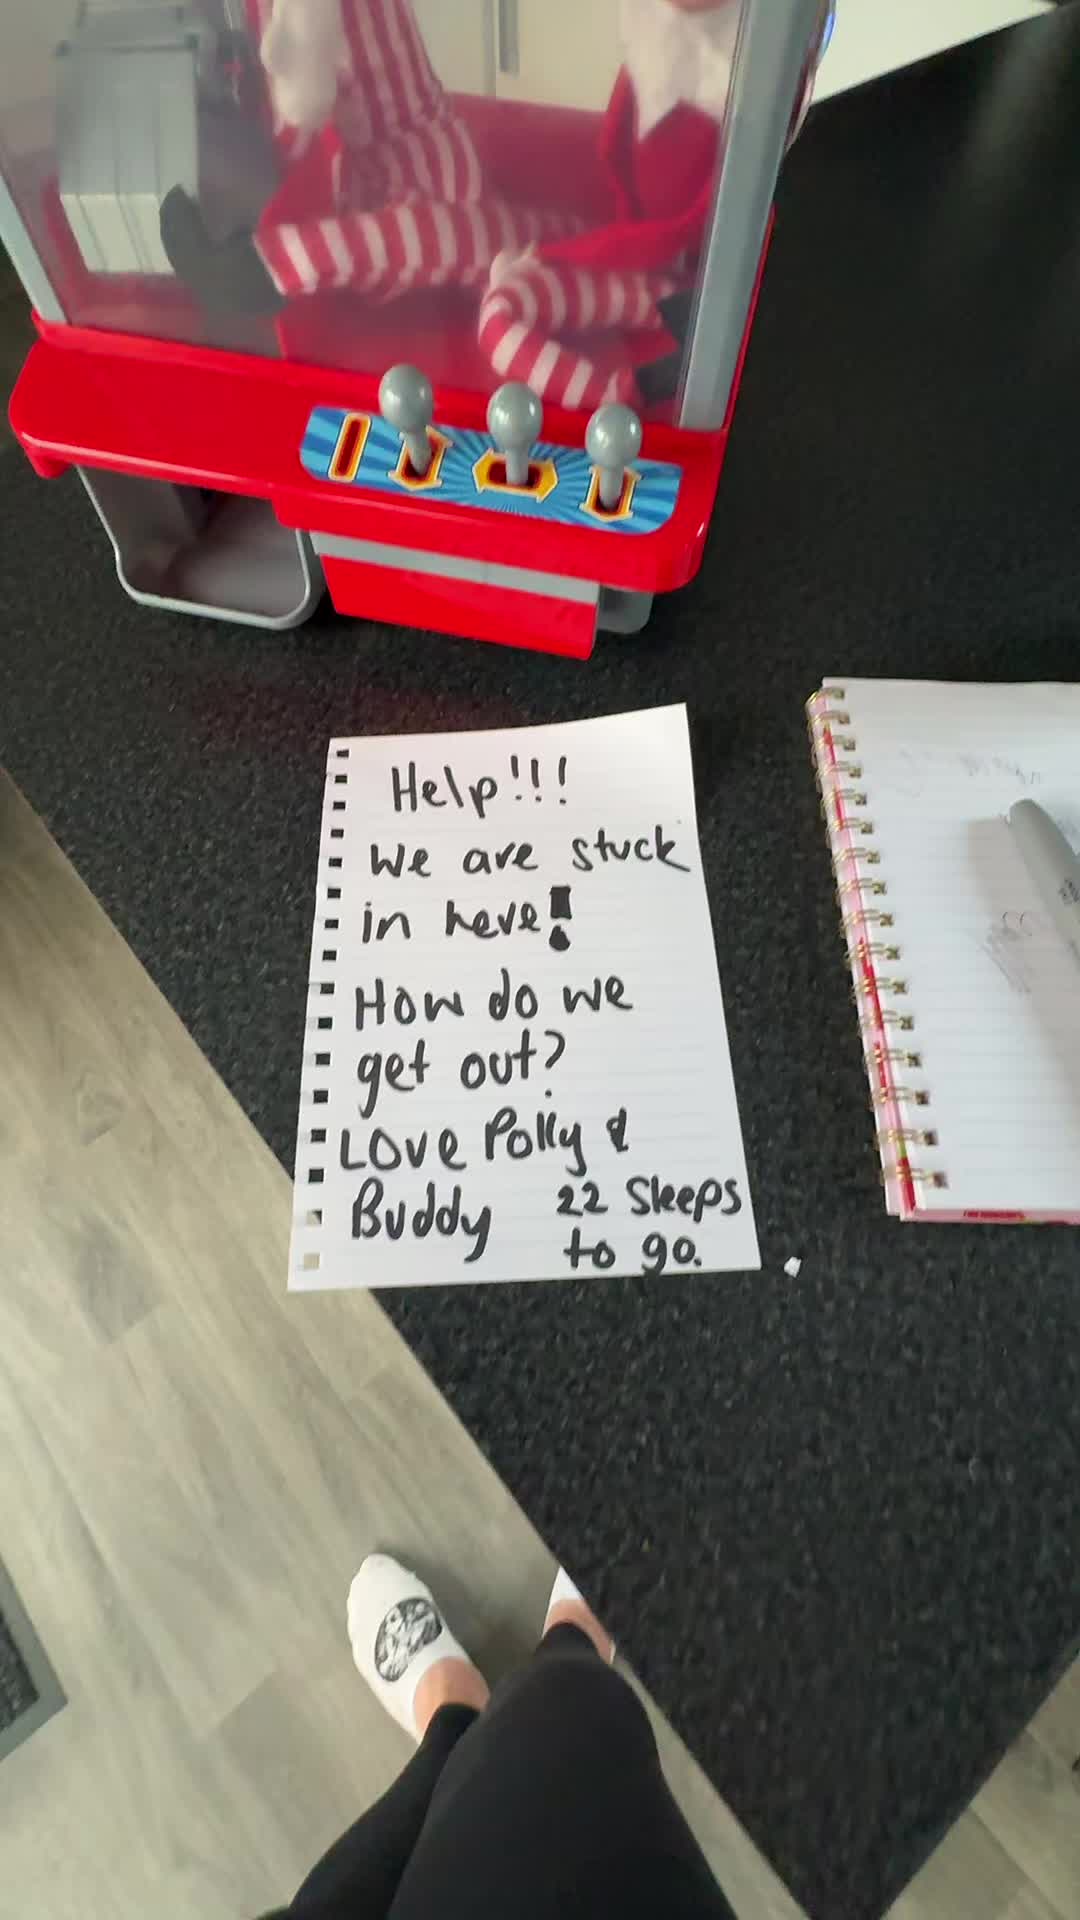 Help!!!
We are stuck
in here!
How do we
get out?
Love Polly &
Buddy 22 Sleeps
to go.